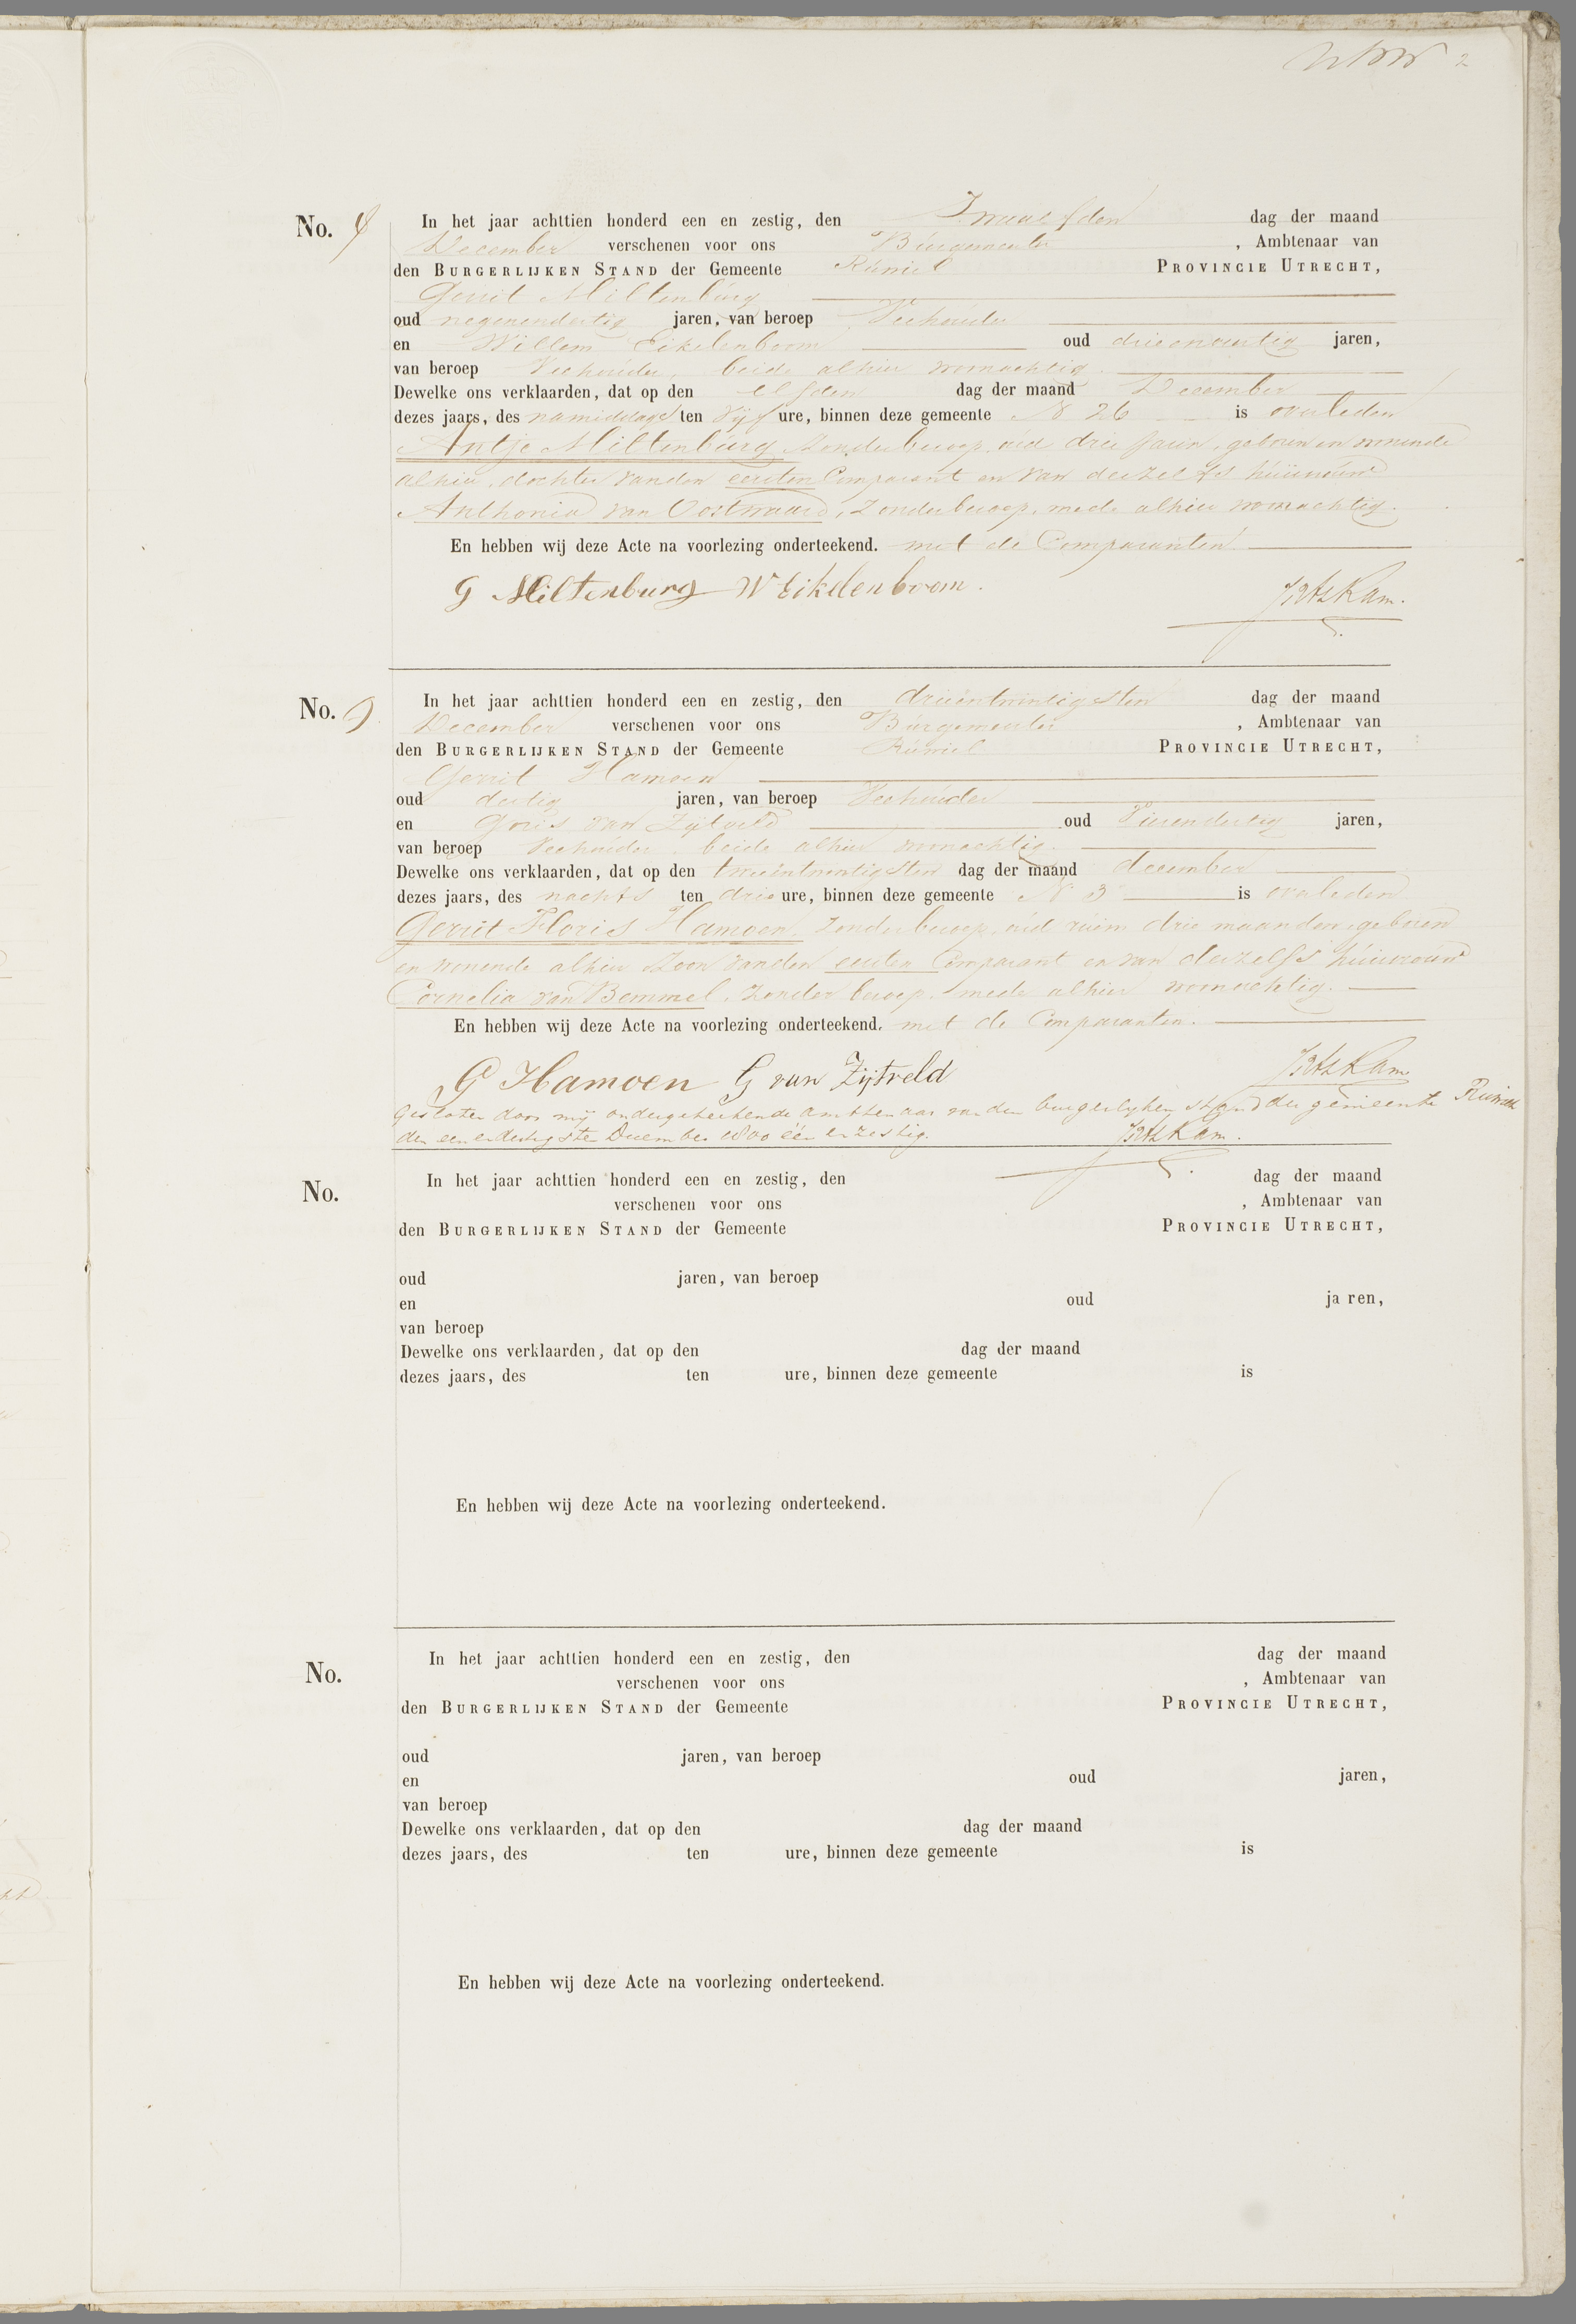 2
No. 8 In het jaar achttien honderd een en zestig, den Twaalfden dag der maand
December verschenen voor ons Burgemeester , Ambtenaar van
den Burgerlijken Stand der Gemeente Ruwiel Provincie Utrecht,
Gerrit Miltenburg
oud negenendertig jaren, van beroep Veehouder
en Willem Eikelenboom oud drieenveertig jaren,
van beroep Veehouder, beide alhier woonachtig
Dewelke ons verklaarden, dat op den elfden dag der maand December
dezes jaars, des namiddags ten vijf ure, binnen deze gemeente N 26 is overleden
Antje Miltenburg Zonder beroep, oud drie jaren, geboren en wonende
alhier, dochter van den eersten Comparant en van deszelfs huisvrouw
Anthonia van Oostwaard, Zonder beroep, mede alhier woonachtig.
En hebben wij deze Acte na voorlezing onderteekend. met de Comparanten
G Miltenburg W Eikelenboom. Kam.
No. 9 In het jaar achttien honderd een en zestig, den drieentwintigsten dag der maand
December verschenen voor ons Burgemeester , Ambtenaar van
den Burgerlijken Stand der Gemeente Ruwiel Provincie Utrecht,
Gerrit Hamoen
oud dertig jaren, van beroep Veehouder
en Goris van Zijtveld oud Vierendertig jaren,
van beroep Veehouder, beide alhier woonachtig.
Dewelke ons verklaarden, dat op den tweeentwintigsten dag der maand december
dezes jaars, des nachts ten drie ure, binnen deze gemeente N 3 is overleden
Gerrit Floris Hamoen, Zonder beroep, oud ruim drie maanden, geboren
en wonende alhier Zoon van den eersten Comparant en van deszelfs huisvrouw
Cornelia van Bemmel, Zonder beroep, mede alhier woonachtig.
En hebben wij deze Acte na voorlezing onderteekend. met de Comparanten.
G Hamoen G van Zijtveld Kam
Gesloten door mij ondergeteekende ambtenaar van den burgerlyken stand der gemeente Ruwiel
den eenendertigsten December 1800 één en zestig. Kam.
No. In het jaar achttien honderd een en zestig, den dag der maand
verschenen voor ons , Ambtenaar van
den Burgerlijken Stand der Gemeente Provincie Utrecht,
oud jaren, van beroep
en oud ja ren,
van beroep
Dewelke ons verklaarden, dat op den dag der maand
dezes jaars, des ten ure, binnen deze gemeente is
En hebben wij deze Acte na voorlezing onderteekend.
No. In het jaar achttien honderd een en zestig, den dag der maand
verschenen voor ons , Ambtenaar van
den Burgerlijken Stand der Gemeente Provincie Utrecht,
oud jaren, van beroep
en oud jaren,
van beroep
Dewelke ons verklaarden, dat op den dag der maand
dezes jaars, des ten ure, binnen deze gemeente is
En hebben wij deze Acte na voorlezing onderteekend.